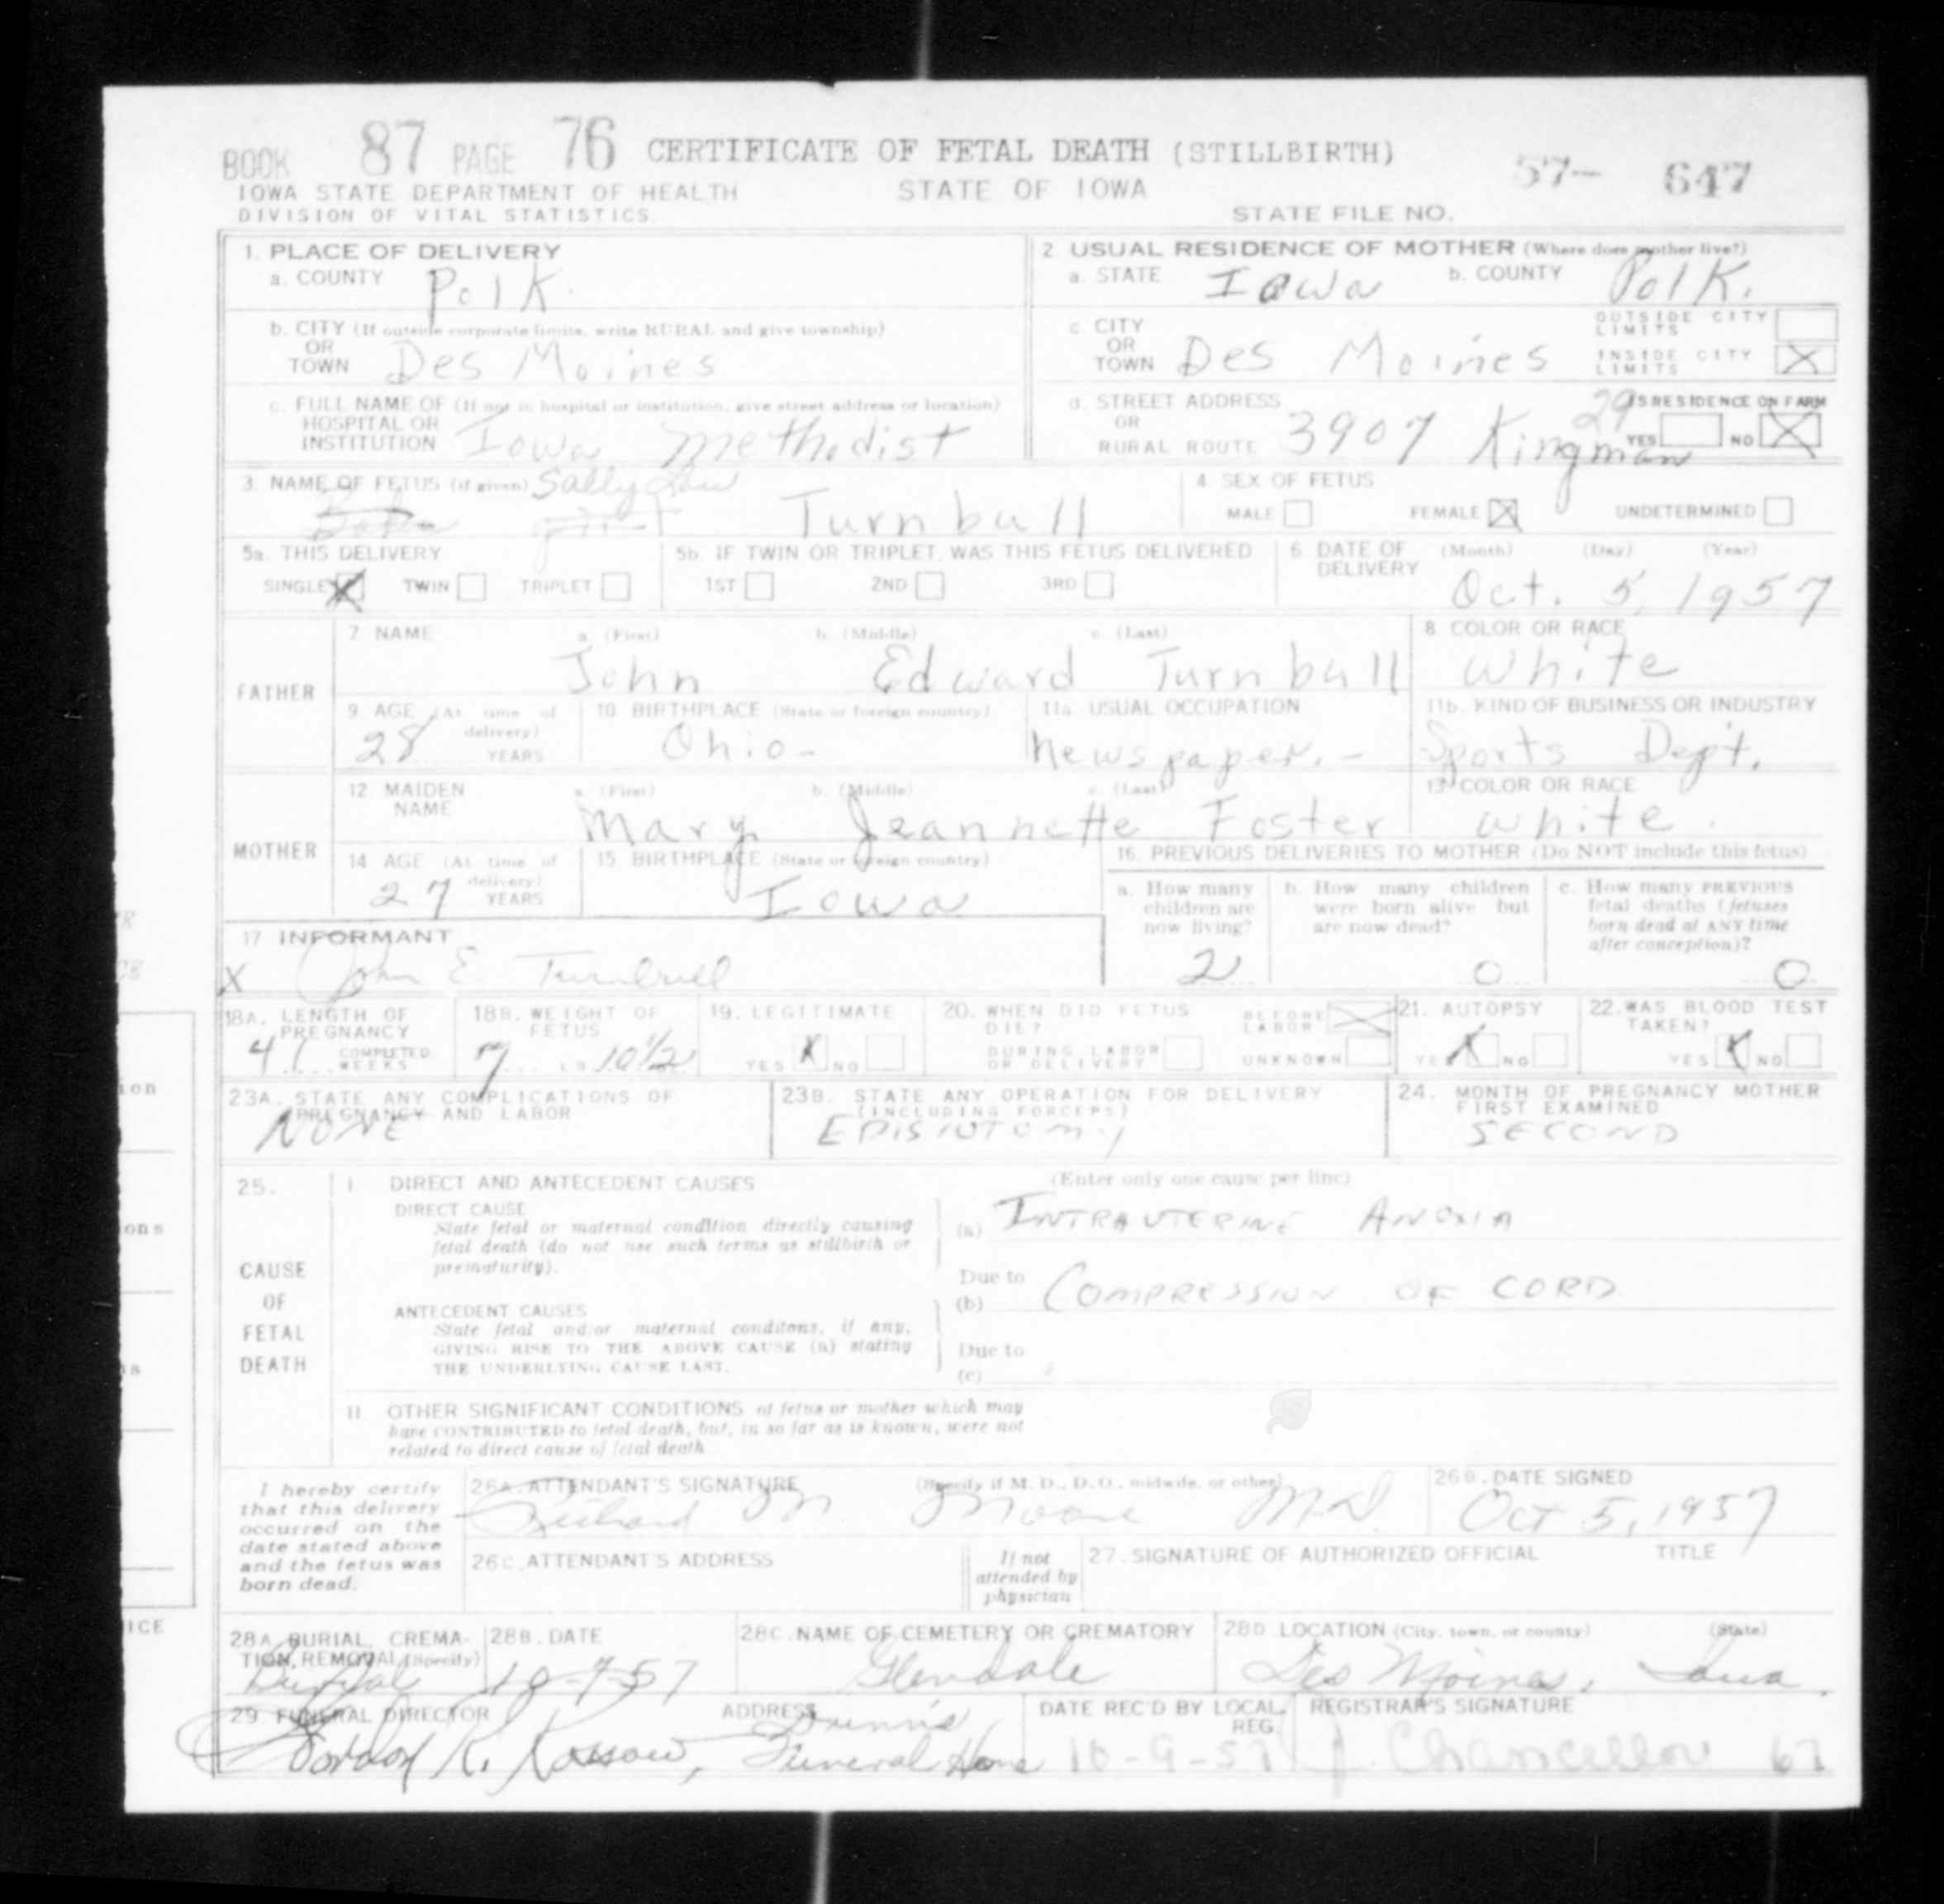 BOOK 87 PAGE 76 CERTIFICATE OF FETAL DEATH (STILLBIRTH) 57- 647
IOWA STATE DEPARTMENT OF HEALTH STATE OF IOWA
DIVISION OF VITAL STATISTICS. STATE FILE NO.
1. PLACE OF DELIVERY
a. COUNTY Polk
b. CITY (If outside corporate limits, write RURAL and give township)
OR
TOWN Des Moines
c. FULL NAME OF (If not in hospital or institution, give street address or location)
HOSPITAL OR
INSTITUTION Iowa Methodist
2. USUAL RESIDENCE OF MOTHER (Where does mother live?)
a. STATE Iowa b. COUNTY Polk.
c. CITY
OR
TOWN Des Moines
OUTSIDE CITY
LIMITS
INSIDE CITY
LIMITS X
d. STREET ADDRESS
OR
RURAL ROUTE 3907 Kingman
29
IS RESIDENCE ON FARM
YES NO X
3. NAME OF FETUS (if given) Sally
girl Turnbull
4. SEX OF FETUS
MALE FEMALE X UNDETERMINED
5a. THIS DELIVERY
SINGLE X TWIN TRIPLET
5b. IF TWIN OR TRIPLET, WAS THIS FETUS DELIVERED
1ST 2ND 3RD
6. DATE OF DELIVERY (Month) (Day) (Year)
Oct. 5, 1957
FATHER
7. NAME a. (First) b. (Middle) c. (Last)
John Edward Turnbull
8. COLOR OR RACE
White
9. AGE (At time of delivery)
28 YEARS
10. BIRTHPLACE (State or foreign country)
Ohio-
11a. USUAL OCCUPATION
Newspaper.-
11b. KIND OF BUSINESS OR INDUSTRY
Sports Dept.
MOTHER
12. MAIDEN NAME a. (First) b. (Middle) c. (Last)
Mary Jeannette Foster
13. COLOR OR RACE
White.
14. AGE (At time of delivery)
27 YEARS
15. BIRTHPLACE (State or foreign country)
Iowa
16. PREVIOUS DELIVERIES TO MOTHER (Do NOT include this fetus)
a. How many children are now living?
2
b. How many children were born alive but are now dead?
0
c. How many PREVIOUS fetal deaths (fetuses born dead at ANY time after conception)?
0
17. INFORMANT
X John E Turnbull
18A. LENGTH OF PREGNANCY
41 COMPLETED WEEKS
18B. WEIGHT OF FETUS
7 LB 10 1/2
19. LEGITIMATE
YES X NO
20. WHEN DID FETUS DIE?
BEFORE LABOR X
DURING LABOR OR DELIVERY
UNKNOWN
21. AUTOPSY
YES X NO
22. WAS BLOOD TEST TAKEN?
YES X NO
23A. STATE ANY COMPLICATIONS OF PREGNANCY AND LABOR
NONE
23B. STATE ANY OPERATION FOR DELIVERY (INCLUDING FORCEPS)
EPISIOTOMY
24. MONTH OF PREGNANCY MOTHER FIRST EXAMINED
SECOND
25.
CAUSE
OF
FETAL
DEATH
I DIRECT AND ANTECEDENT CAUSES (Enter only one cause per line)
DIRECT CAUSE
State fetal or maternal condition directly causing
fetal death (do not use such terms as stillbirth or
prematurity).
(a) INTRAUTERINE ANOXIA
Due to
(b) COMPRESSION OF CORD
ANTECEDENT CAUSES
State fetal and/or maternal conditons, if any,
GIVING RISE TO THE ABOVE CAUSE (a) stating
THE UNDERLYING CAUSE LAST.
Due to
(c)
II. OTHER SIGNIFICANT CONDITIONS of fetus or mother which may
have CONTRIBUTED to fetal death, but, in so far as is known, were not
related to direct cause of fetal death
I hereby certify
that this delivery
occurred on the
date stated above
and the fetus was
born dead.
26A. ATTENDANT'S SIGNATURE (Specify if M. D., D.O., midwife, or other)
Richard M Moore M.D.
26B. DATE SIGNED
Oct 5, 1957
26C. ATTENDANT'S ADDRESS
If not
attended by
physician
27. SIGNATURE OF AUTHORIZED OFFICIAL TITLE
28A. BURIAL, CREMATION, REMOVAL (Specify)
Burial
28B. DATE
10-7-57
28C. NAME OF CEMETERY OR CREMATORY
Glendale
28D. LOCATION (City, town, or county) (State)
Des Moines, Iowa.
29. FUNERAL DIRECTOR ADDRESS
Gordon K. Rassow, Dunn's
Funeral Home
DATE REC'D BY LOCAL REG.
10-9-57
REGISTRAR'S SIGNATURE
J. Chancellor